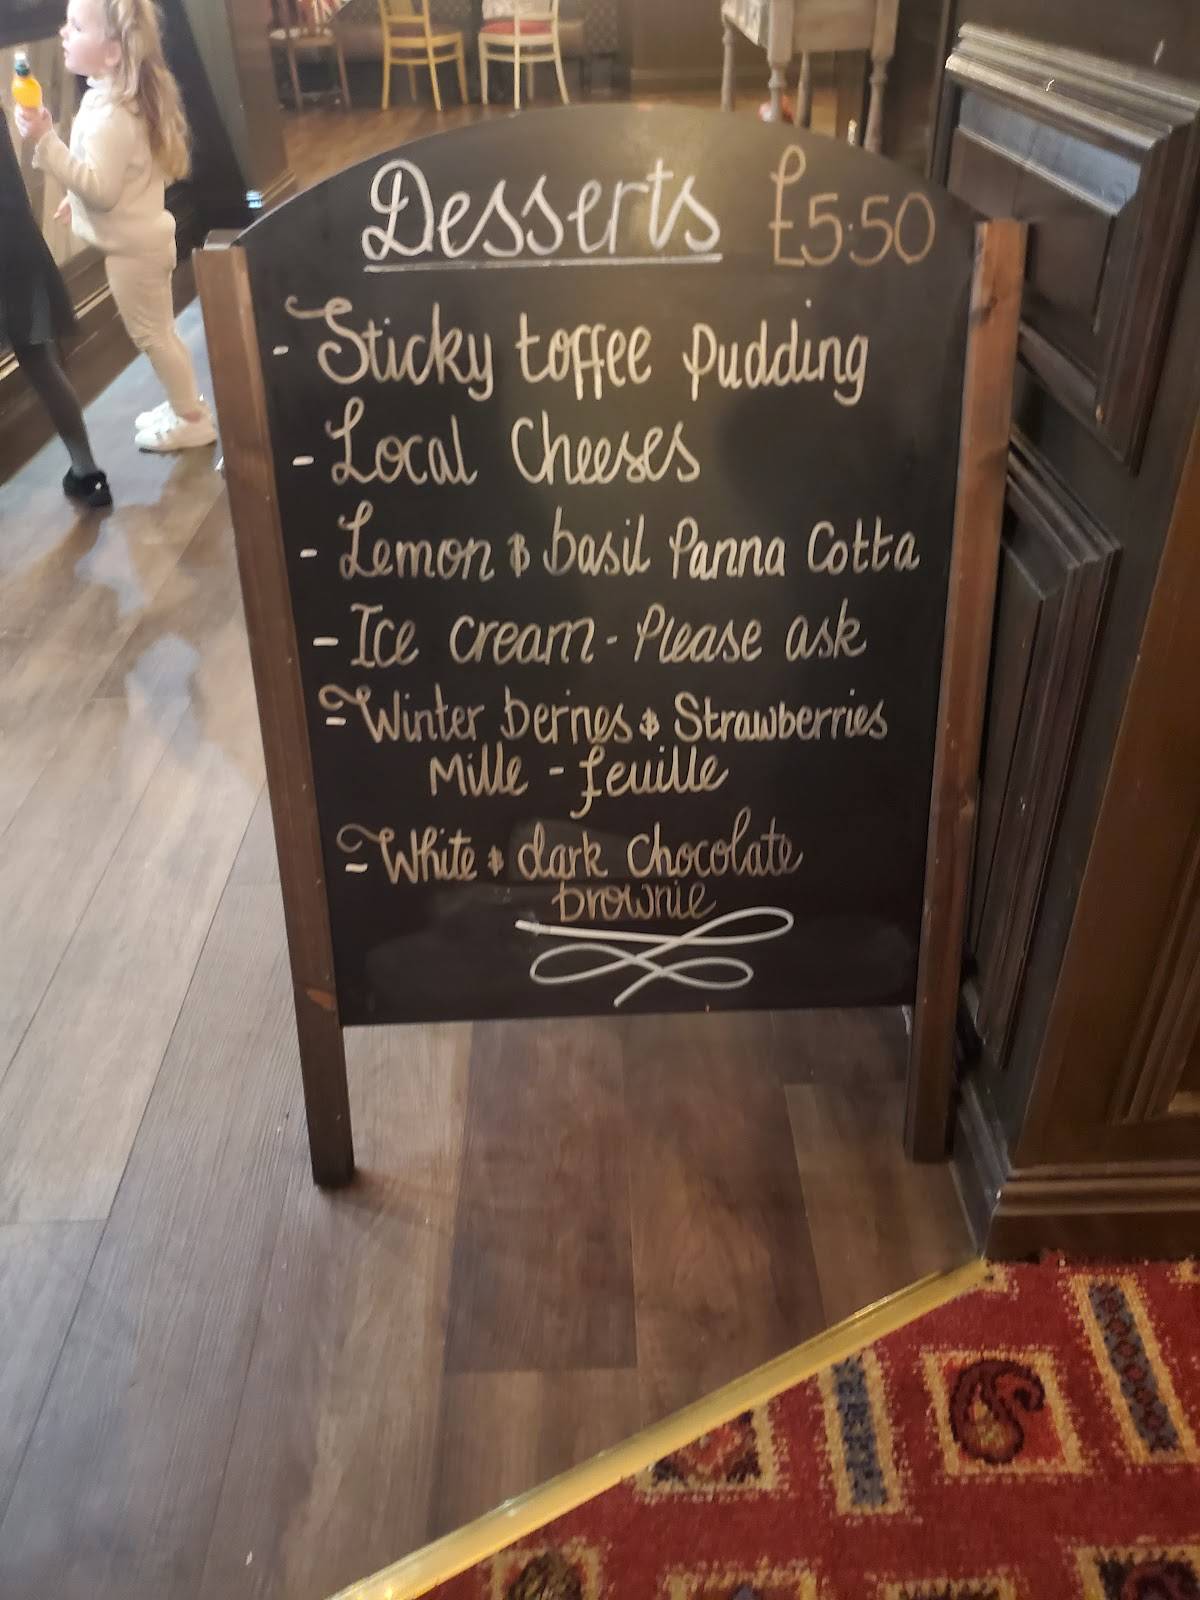 Desserts £5.50
- Sticky toffee Pudding
- Local Cheeses
- Lemon & basil Panna Cotta
- Ice cream - Please ask
- Winter berries & Strawberries
Mille - feuille
- White & dark Chocolate
brownie